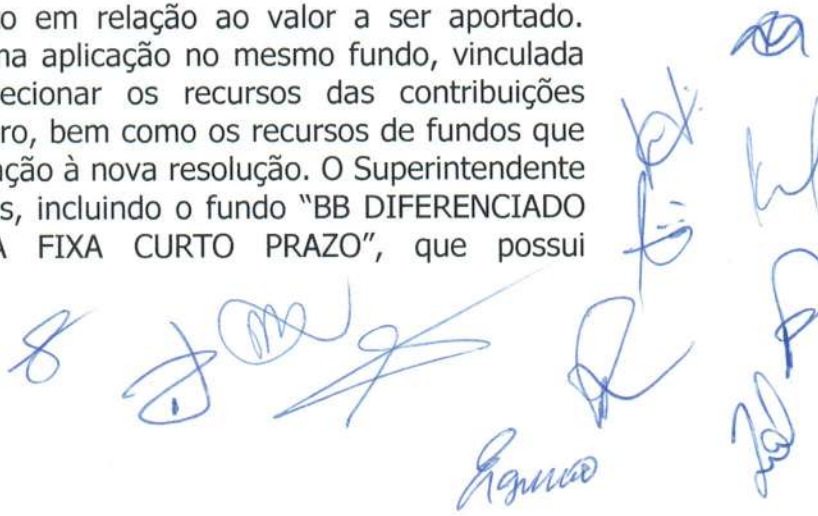 o em relação ao valor a ser aportado.
na aplicação no mesmo fundo, vinculada
ecionar os recursos das contribuições
ro, bem como os recursos de fundos que
ação à nova resolução. O Superintendente
s, incluindo o fundo “BB DIFERENCIADO
A FIXA CURTO PRAZO”, que possui